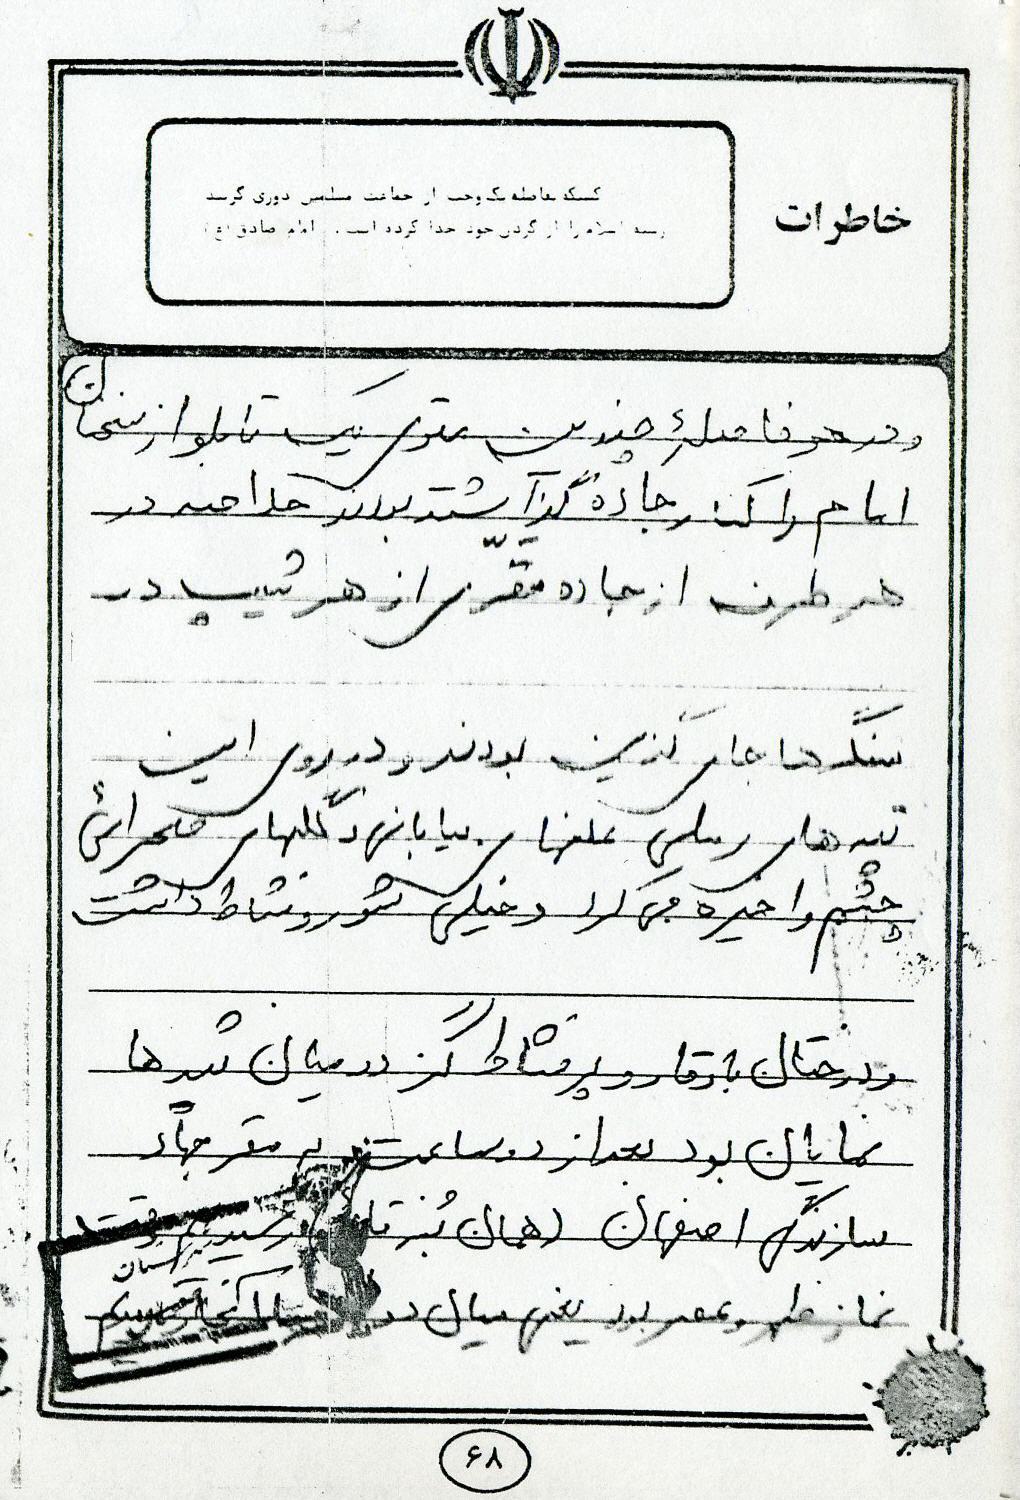 خاطرات
کسیکه بفاصله یک وجب از جماعت مسلمین دوری گزیند
رسته اسلام را از گردن خود جدا کرده است. امام صادق (ع)
و در هر فاصلهٔ چندین متری یک تابلو از سخنان
امام را کنار جاده گذآشته بودند خلاصه در
هر طرف از جاده مقرّی از هر تیپ در
سنگرها جای گزین بودند و در روی این
تپه‌های رملی علفهای بیابانی و گلهای صحرائی
چشم را خیره می کرد و خیلی شور و نشاط داشت
و درختان باوقار و پرنشاط گز در میان تپه‌ها
نمایان بود بعد از دو ساعت به مقر جهاد
سازندگی اصفهان (همان رسیدیم وقت
نماز ظهر و عصر بود یعنی
۶۸